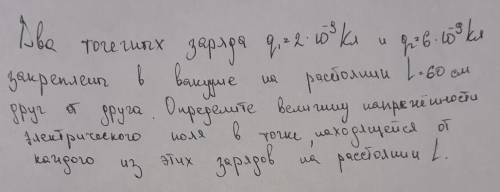 Два точечных заряда q₁=2·10⁻⁹ Кл и q₂=6·10⁻⁹ Кл
закреплены в вакууме на расстоянии L=60 см
друг от друга. Определите величину напряжённости
электрического поля в точке, находящейся от
каждого из этих зарядов на расстоянии L.